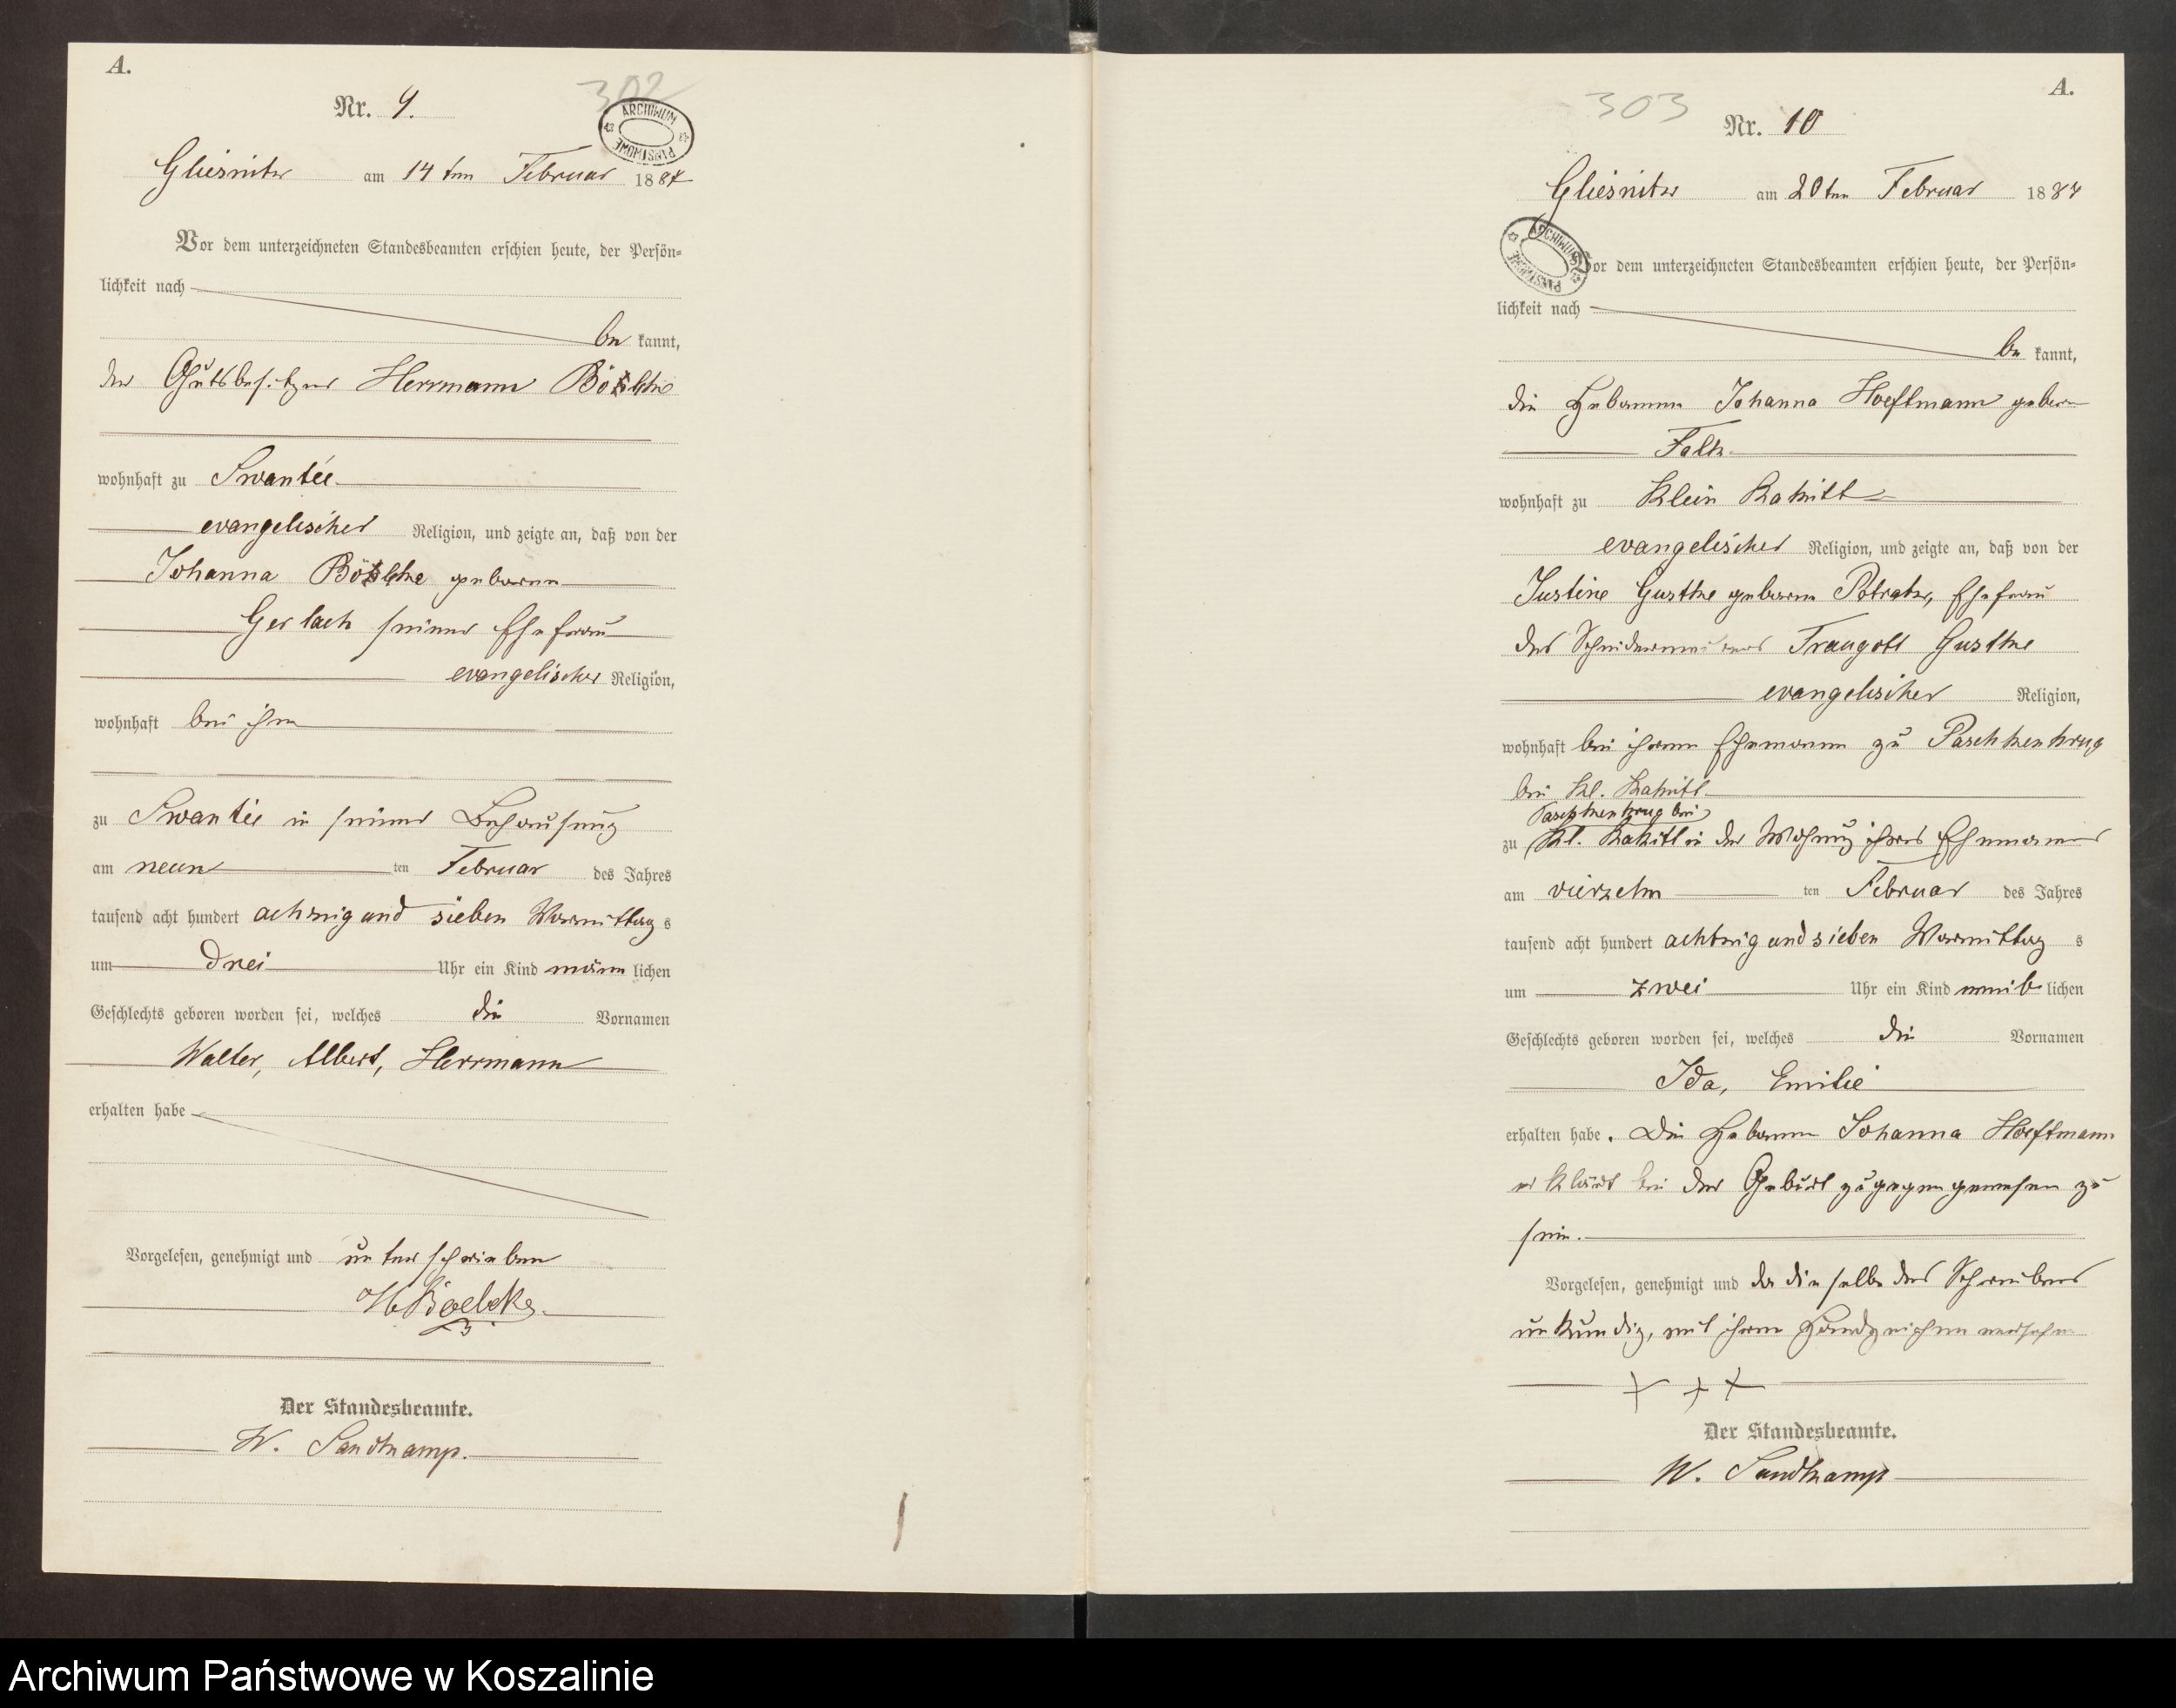 A.
302
Nr. 9.
ARCHIWUM PAŃSTWOWE
Gliesnitz am 14ten Februar 1887
Vor dem unterzeichneten Standesbeamten erschien heute, der Persön-
lichkeit nach
be kannt,
der Gutsbesitzer Herrmann
wohnhaft zu Swantee
evangelischer Religion, und zeigte an, daß von der
Johanna geborene
Gerlach seiner Ehefrau
evangelischer Religion,
wohnhaft bei ihm
zu Swantee in seiner Behausung
am neun ten Februar des Jahres
tausend acht hundert achtzig und sieben Vormittags
um drei Uhr ein Kind männlichen
Geschlechts geboren worden sei, welches die Vornamen
Walter, Albert, Herrmann
erhalten habe
Vorgelesen, genehmigt und unterschrieben
H Boelcke.
Der Standesbeamte.
W. Sandkamp.
A.
303
Nr. 10
Gliesnitz am 20ten Februar 1887
ARCHIWUM PAŃSTWOWE
Vor dem unterzeichneten Standesbeamten erschien heute, der Persön-
lichkeit nach
be kannt,
die Hebamme Johanna Hoeftmann geboren
wohnhaft zu Klein Rakitt
evangelischer Religion, und zeigte an, daß von der
Justine Gustke geborne Potratz, Ehefrau
des Traugott Gustke
evangelischer Religion,
wohnhaft bei ihrem Ehemann zu Paschkenkrug
bei Kl. Rakitt
Paschkenkrug bei
zu Kl. Rakitt in der Wohnung ihres Ehemannes
am vierzehn ten Februar des Jahres
tausend acht hundert achtzig und sieben Vormittags
um zwei Uhr ein Kind weiblichen
Geschlechts geboren worden sei, welches die Vornamen
Ida, Emilie
erhalten habe. Die Hebamme Johanna Hoeftmann
erklärt bei der Geburt zugegen gewesen zu
sein.
Vorgelesen, genehmigt und da dieselbe des Schreibens
unkundig, mit ihrem Handzeichen versehen
+ + +
Der Standesbeamte.
W. Sandkamp
Archiwum Państwowe w Koszalinie